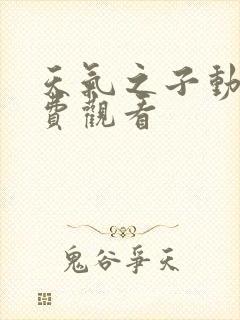 天氣之子動
費觀看
鬼谷爭天